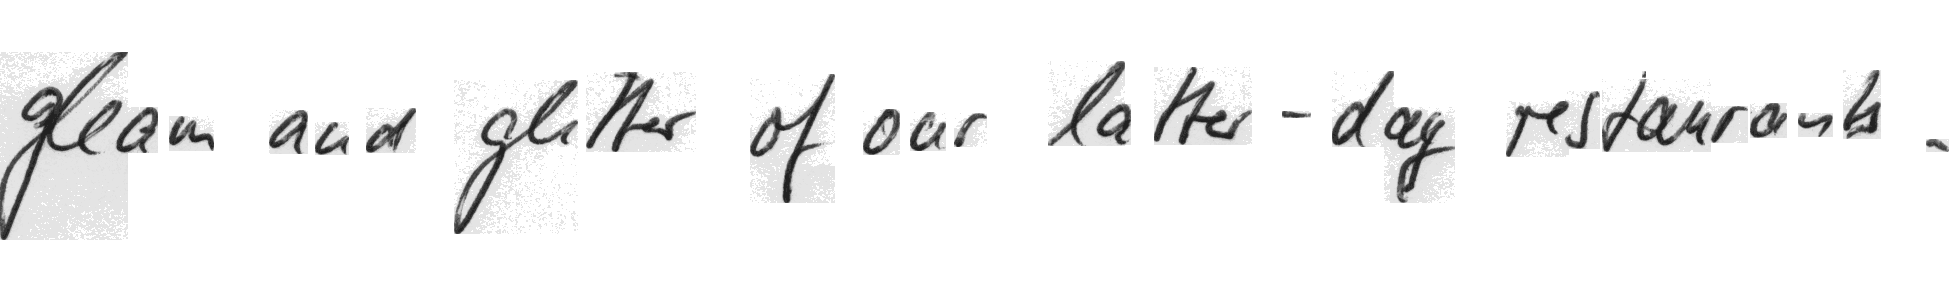 gleam and glitter of our latter-day restaurants.